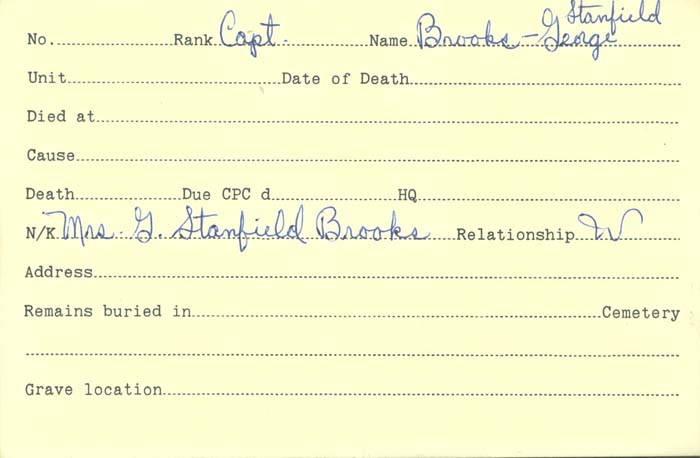 No. Rank Capt. Name Brooks - George Stanfield
Unit Date of Death
Died at
Cause
Death Due CPC d. HQ
N/K Mrs. G. Stanfield Brooks Relationship W
Address
Remains buried in Cemetery
Grave location